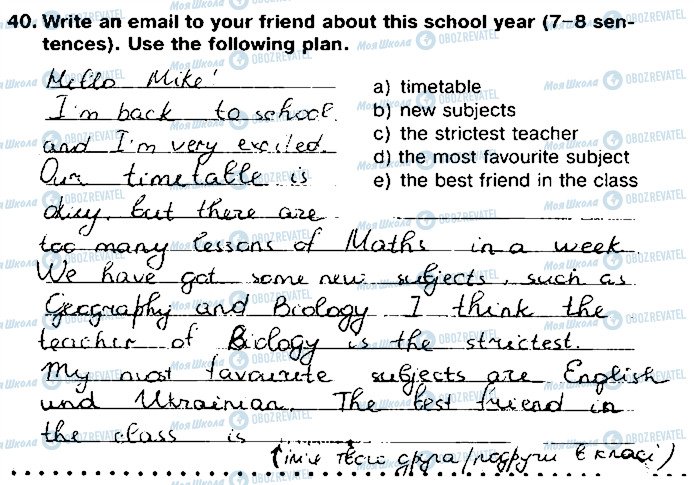 40. Write an email to your friend about this school year (7–8 sen-
tences). Use the following plan.
Hello Mike!
a) timetable
I'm back to school
b) new subjects
and I'm very excited.
c) the strictest teacher
Our timetable is
d) the most favourite subject
e) the best friend in the class
but there are
too many lessons of Maths in a week.
We have got some new subjects, such as
Geography and Biology I think the
teacher of Biology is the strictest.
My most favourite subjects are English
und Ukrainian. The best friend in
the class is
(імʼя твого друга/подруги в класі)
Моя Школа OBOZREVATEL